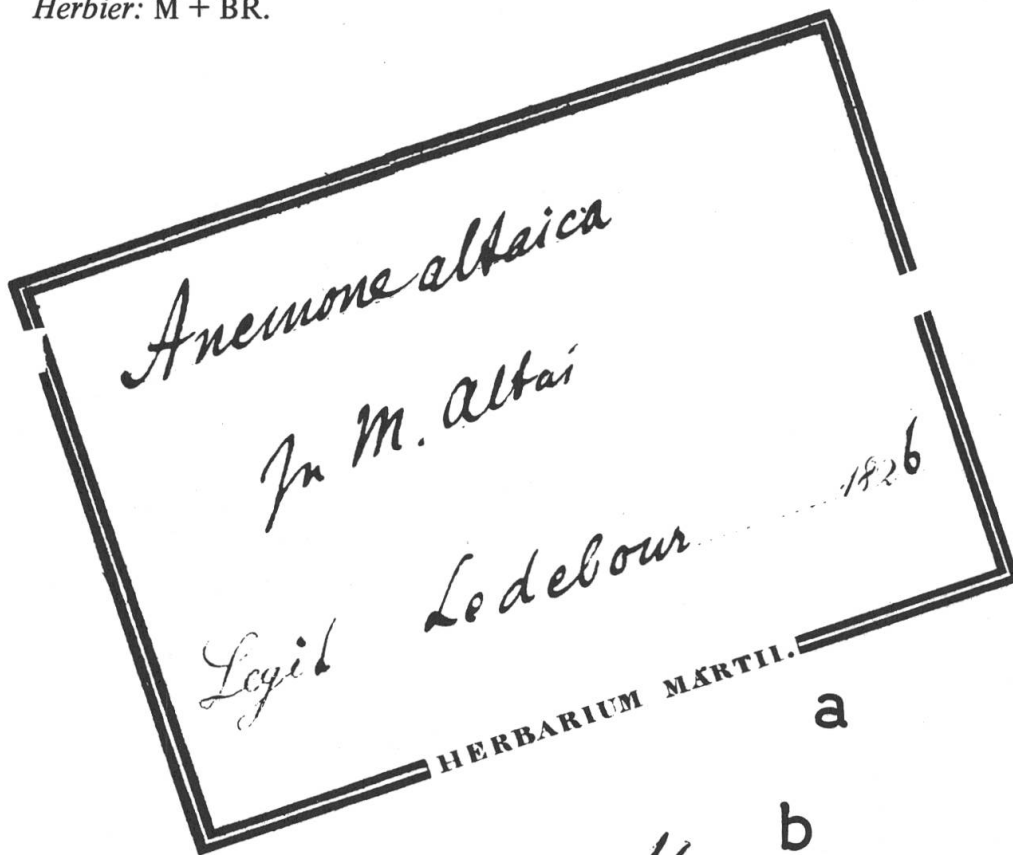 Herbier: M + BR.
Anemone altaica
In M. Altai
Legit Ledebour 1826
HERBARIUM MARTII.
a
b